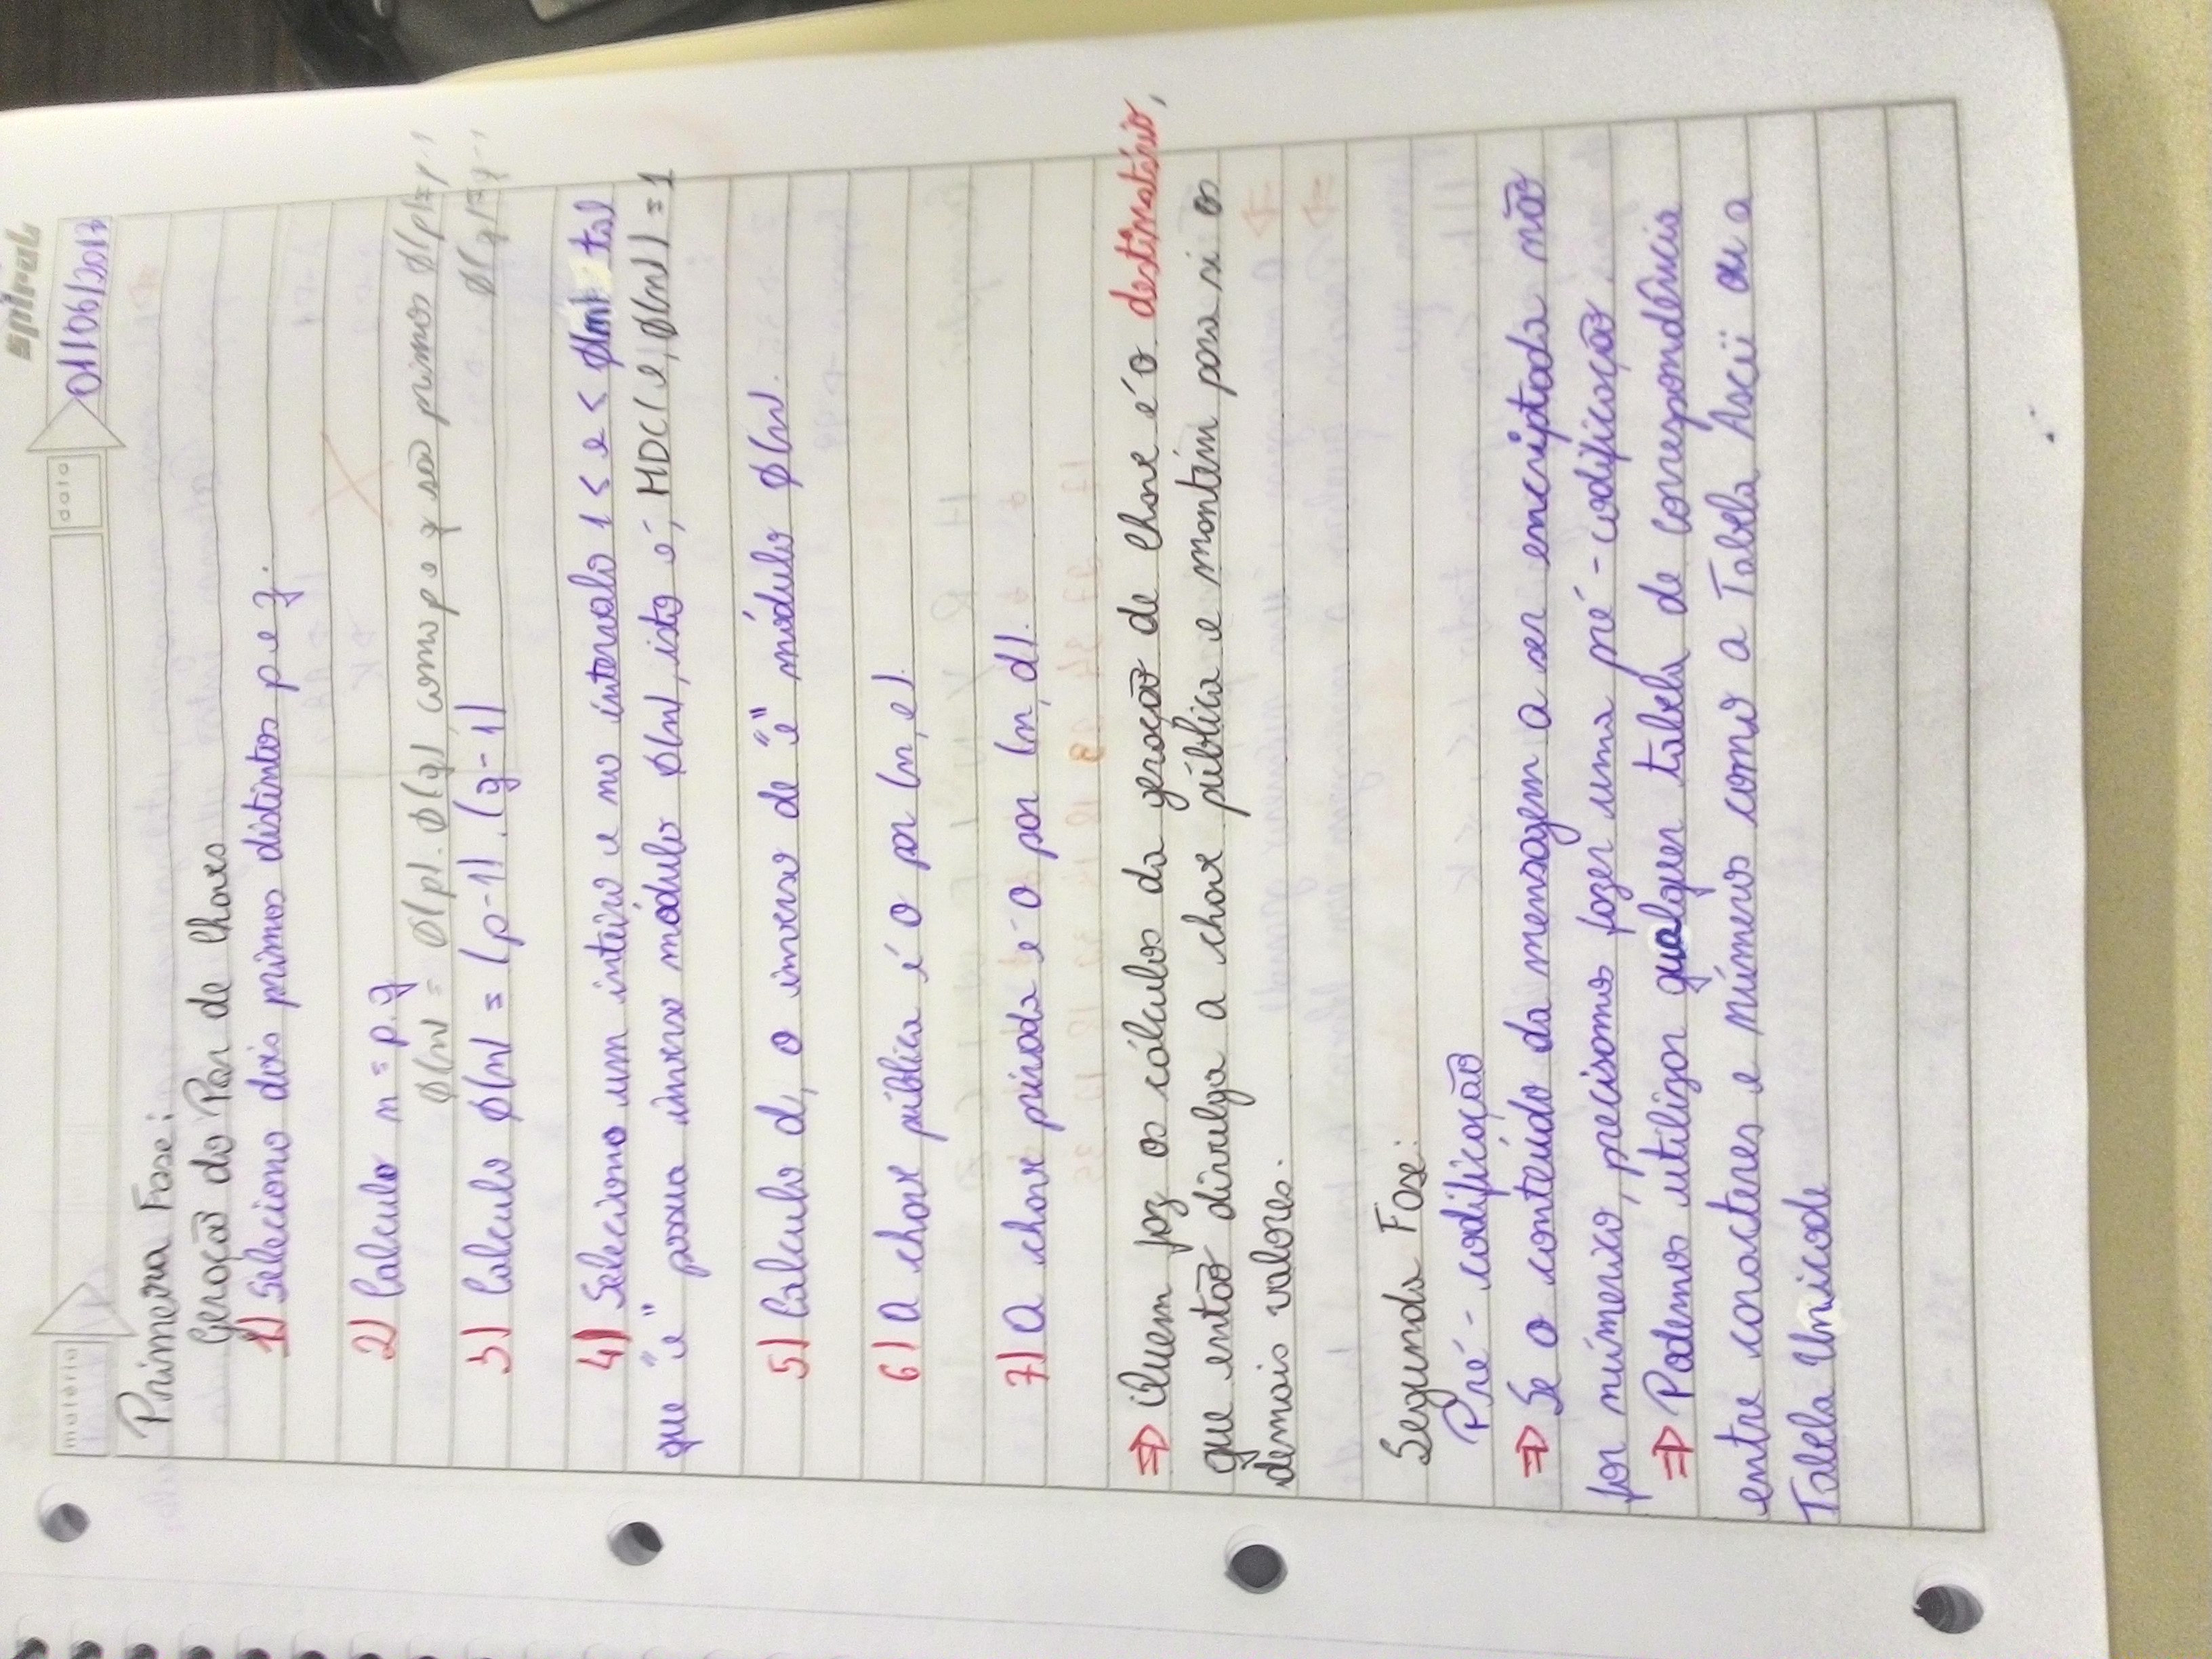 spiral
matéria
data
01/06/2017
Primeira Fase:
Geração do Par de Chaves
1) Seleciono dois primos distintos p e q.
2) Calculo n = p.q
ϕ(n) = ϕ(p).ϕ(q), como p e q são primos ϕ(p)=p-1
ϕ(q)=q-1
3) Calculo ϕ(n) = (p-1).(q-1)
4) Seleciono um inteiro e no intervalo 1 < e < ϕ(n) tal
que "e" possua inverso módulo ϕ(n), isto é, MDC(e, ϕ(n)) = 1
5) Calculo d, o inverso de "e" módulo ϕ(n).
6) A chave pública é o par (n, e).
7) A chave privada é o par (n, d).
⇒ Quem faz os cálculos da geração de chave é o destinatário,
que então divulga a chave pública e mantém para si os
demais valores.
Segunda Fase:
Pré-codificação
⇒ Se o conteúdo da mensagem a ser encriptada não
for númerico, precisamos fazer uma pré-codificação.
⇒ Podemos utilizar qualquer tabela de correspondência
entre caracteres e números como a Tabela Ascii ou a
Tabela Unicode